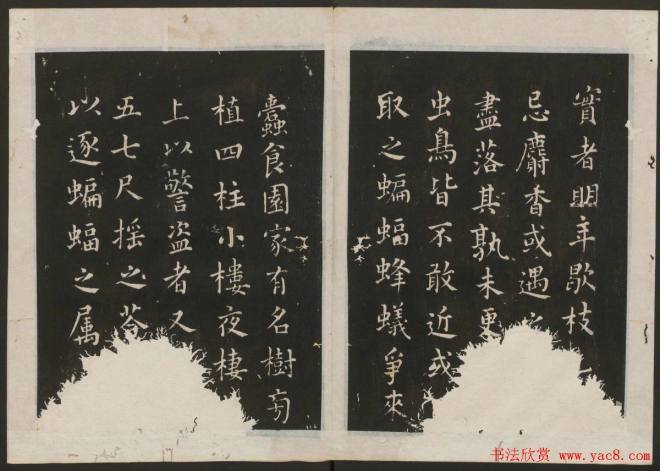 實者明年歇枝
忌麝香或遇之
盡落其孰未更
虫鳥皆不敢近或
取之蝙蝠蜂蟻爭來
蠹食園家有名樹旁
植四柱小樓夜棲
上以警盗者又
五七尺揺之荅
以逐蝙蝠之属
书法欣赏 www.yac8.com